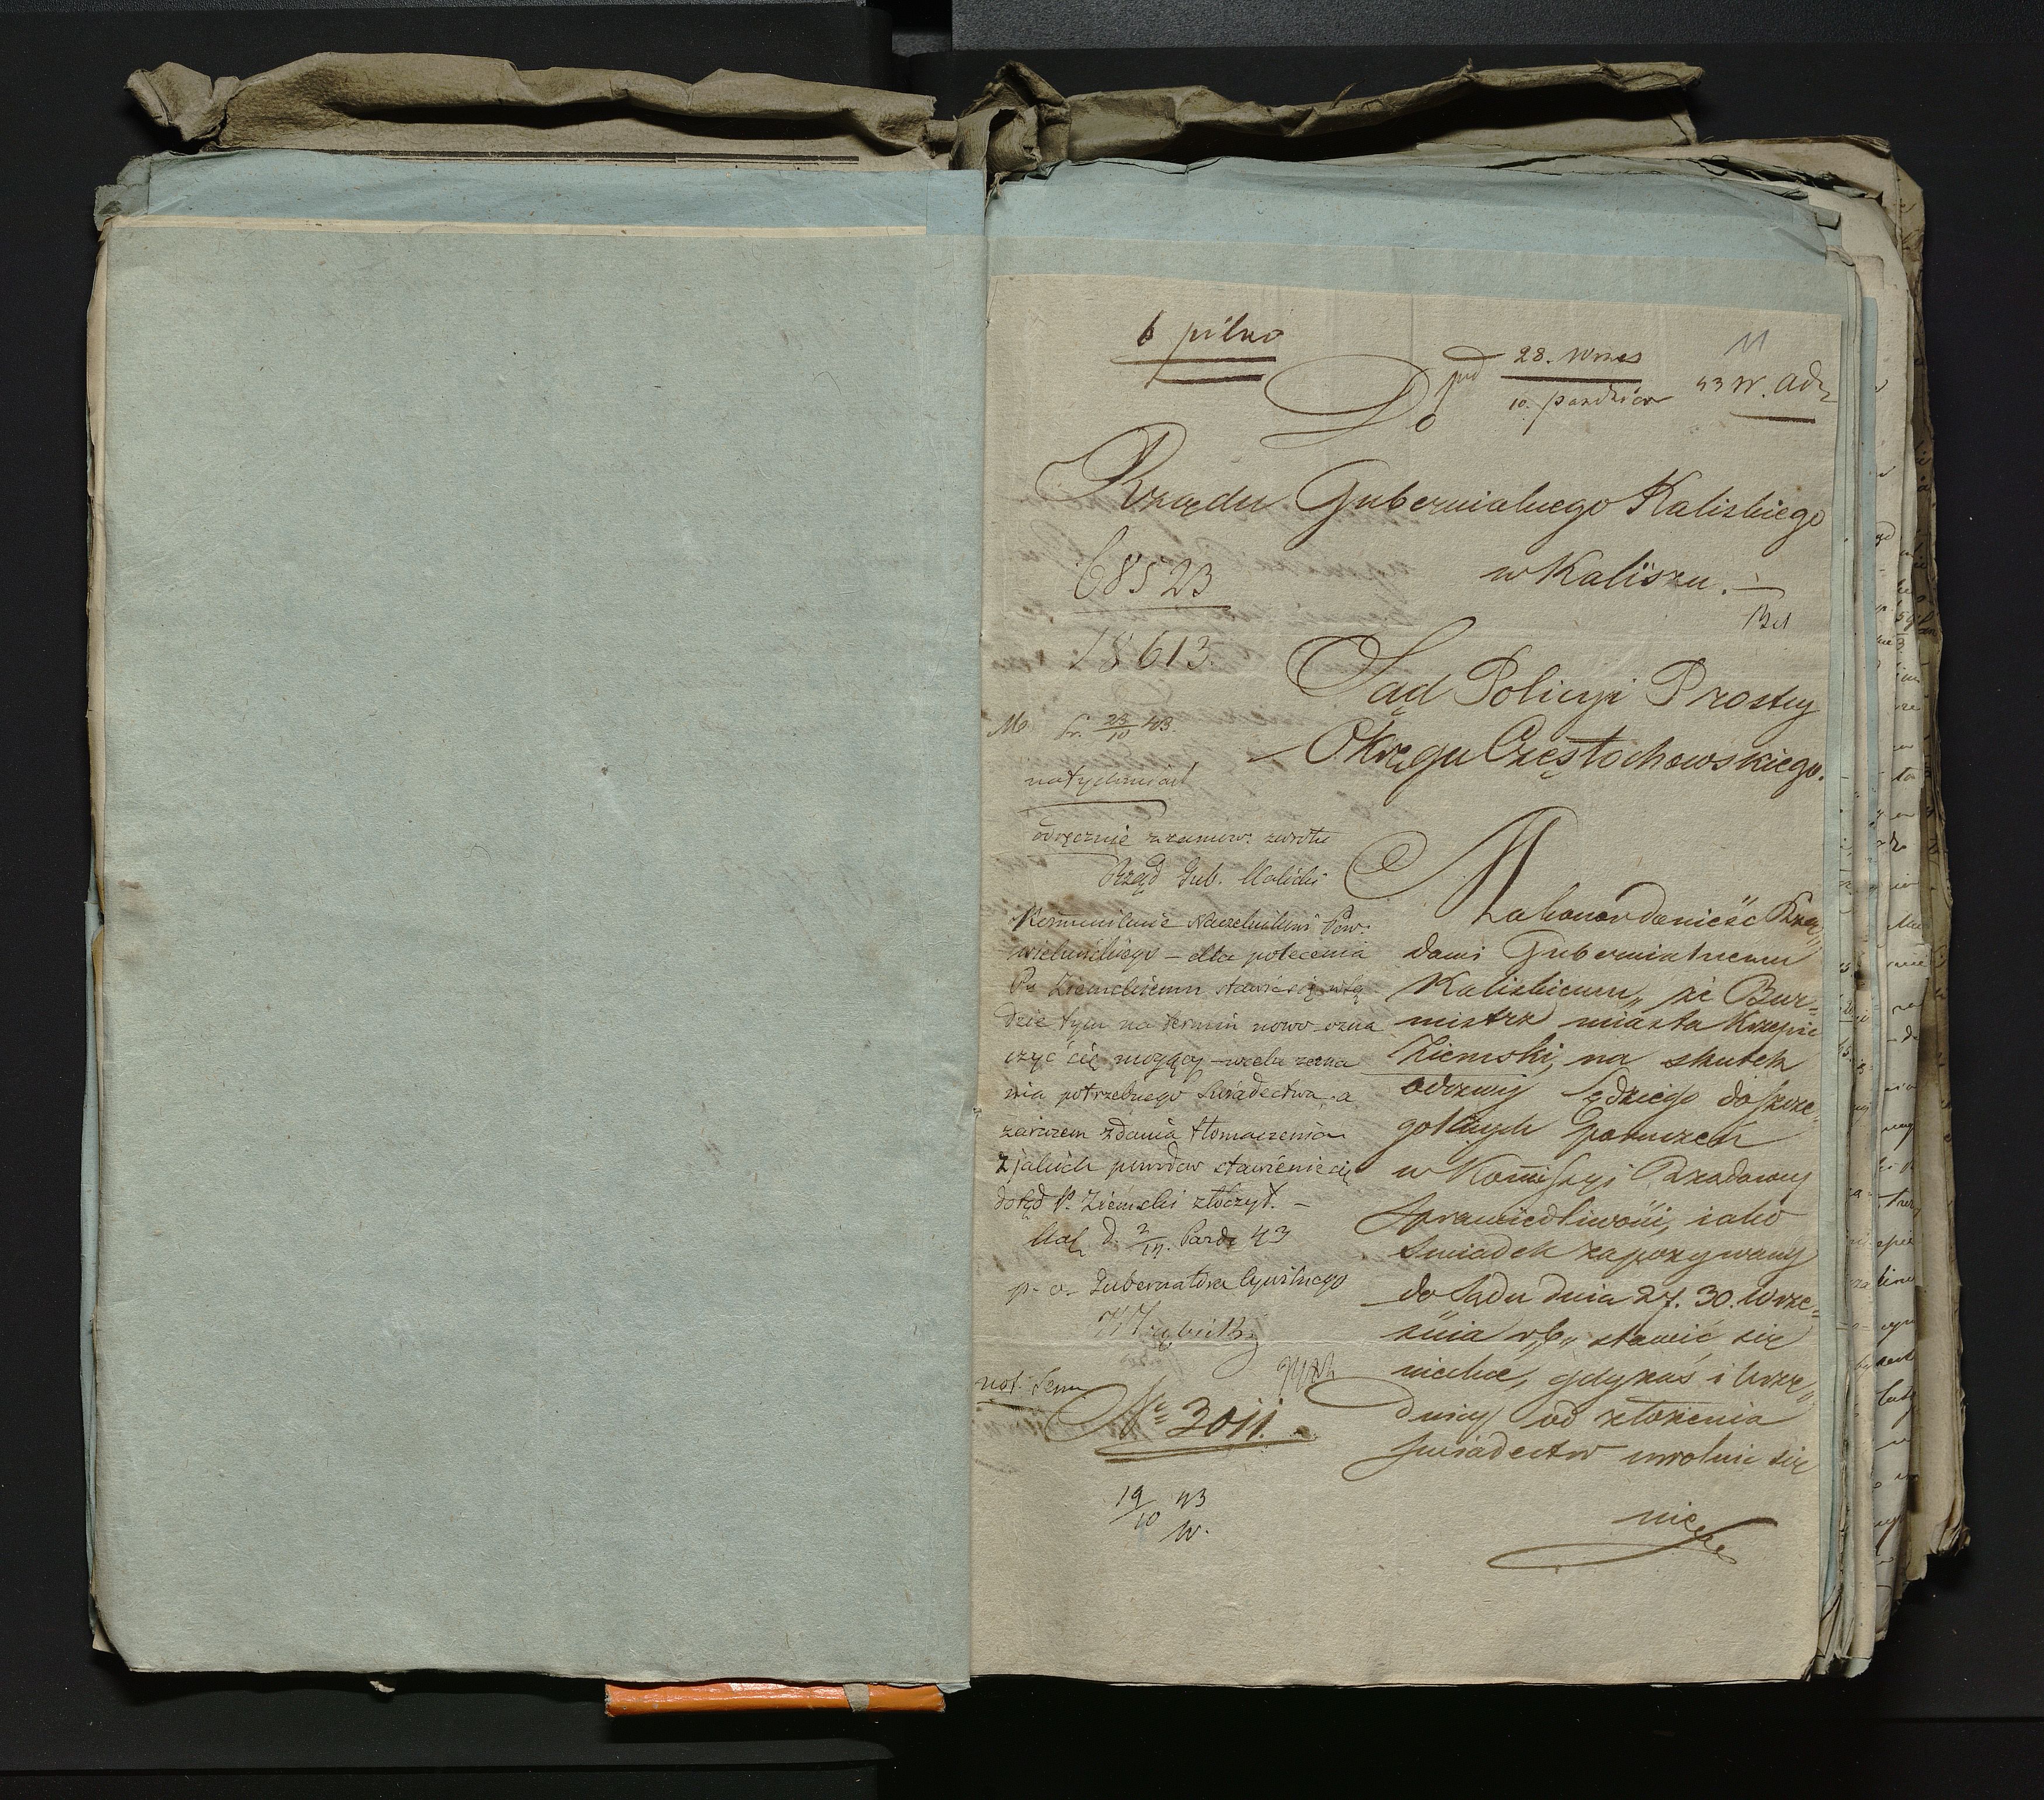 pilno
11
prd 28. Wrześ
10. Paździer 43 W. Adm
Do
Rządu Gubernialnego Kaliskiego
w Kaliszu. —
68523
18613.
Sąd Policyi Prostey
Okręgu Częstochowskiego.
23/10 43.
natychmiast
odręcznie z zamów: zwrotu
Rząd Gub. Kaliski
Kommunikuie Naczelnikowi Pow:
Wieluńskiego – dla polecenia
Pu Ziemskiemu stawić się w Są
dzie tym na termin nowo ozna
czyć się mogący – w celu zezna
nia potrzebnego Świadectwa, a
zarazem zdania tłomaczenia
z jakich powodów stawienie się
dotąd P. Ziemski zboczył. –
Kal d. 2/14. Paźdz 43
p. o. Gubernatora Cywilnego
not. Term
No 3011.
19/10 43
W.
Ma honor donieść Rzą„
dowi Gubernialnemu
Kaliskiemu, że Bur=
mistrz miasta Krzepic
Ziemski, na skutek
odezwy Sędziego do szcze„
gólnych poruczeń
w Kommissyi Rządowey
Sprawiedliwości, iako
świadek zapozywany
do Sądu dnia 27. 30. Wrze=
śnia r, b, stawić się
niechce, gdy zaś i Urzę„
dowy od złożenia
świadectw uwolnić się
nie